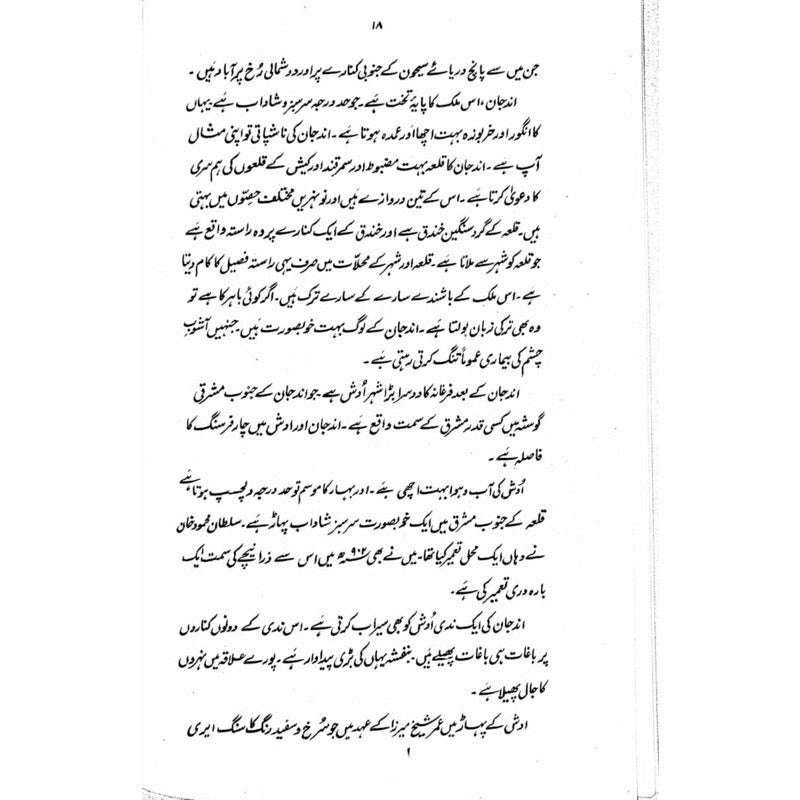 ۱۸
جن میں سے پانچ دریائے سیحون کے جنوبی کنارے پر اور دو شمالی رُخ پر آباد ہیں ۔
اندجان، اس ملک کا پایۂ تخت ہے ۔ جو حد درجہ سرسبز و شاداب ہے یہاں
کا انگور اور خربوزہ بہت اچھا اور عمدہ ہوتا ہے ۔ اندجان کی ناشپاتی تو اپنی مثال
آپ ہے ۔ اندجان کا قلعہ بہت مضبوط اور سمرقند اور کیش کے قلعوں کی ہم سری
کا دعویٰ کرتا ہے ۔ اس کے تین دروازے ہیں اور نو نہریں مختلف حصّوں میں بہتی
ہیں ۔ قلعہ کے گرد سنگین خندق ہے اور خندق کے ایک کنارے پر وہ راستہ واقع ہے
جو قلعہ کو شہر سے ملاتا ہے ۔ قلعہ اور شہر کے محلات میں صرف یہی راستہ فصیل کا کام دیتا
ہے ۔ اس ملک کے باشندے سارے کے سارے ترک ہیں ۔ اگر کوئی باہر کا ہے تو
وہ بھی ترکی زبان بولتا ہے ۔ اندجان کے لوگ بہت خوبصورت ہیں ۔ جنہیں آشوبِ
چشم کی بیماری عموماً تنگ کرتی رہتی ہے ۔
اندجان کے بعد فرغانہ کا دوسرا بڑا شہر اُوش ہے ۔ جو اندجان کے جنوب مشرقی
گوشہ میں کسی قدر مشرق کے سمت واقع ہے ۔ اندجان اور اوش میں چار فرسنگ کا
فاصلہ ہے ۔
اُوش کی آب و ہوا بہت اچھی ہے ۔ اور بہار کا موسم تو حد درجہ دلچسپ ہوتا ہے
قلعہ کے جنوب مشرق میں ایک خوبصورت سرسبز شاداب پہاڑ ہے ۔ سلطان محمود خان
نے وہاں ایک محل تعمیر کیا تھا ۔ میں نے بھی ۹۰۲ھ میں اس سے ذرا نیچے کی سمت ایک
بارہ دری تعمیر کی ہے ۔
اندجان کی ایک ندی اُوش کو بھی سیراب کرتی ہے ۔ اس ندی کے دونوں کناروں
پر باغات ہی باغات پھیلے ہیں ۔ بنفشہ یہاں کی بڑی پیداوار ہے ۔ پورے علاقہ میں نہروں
کا جال پھیلا ہے ۔
اوش کے پہاڑ میں عمر شیخ میرزا کے عہد میں جو سُرخ و سفید رنگ کا سنگ ابری